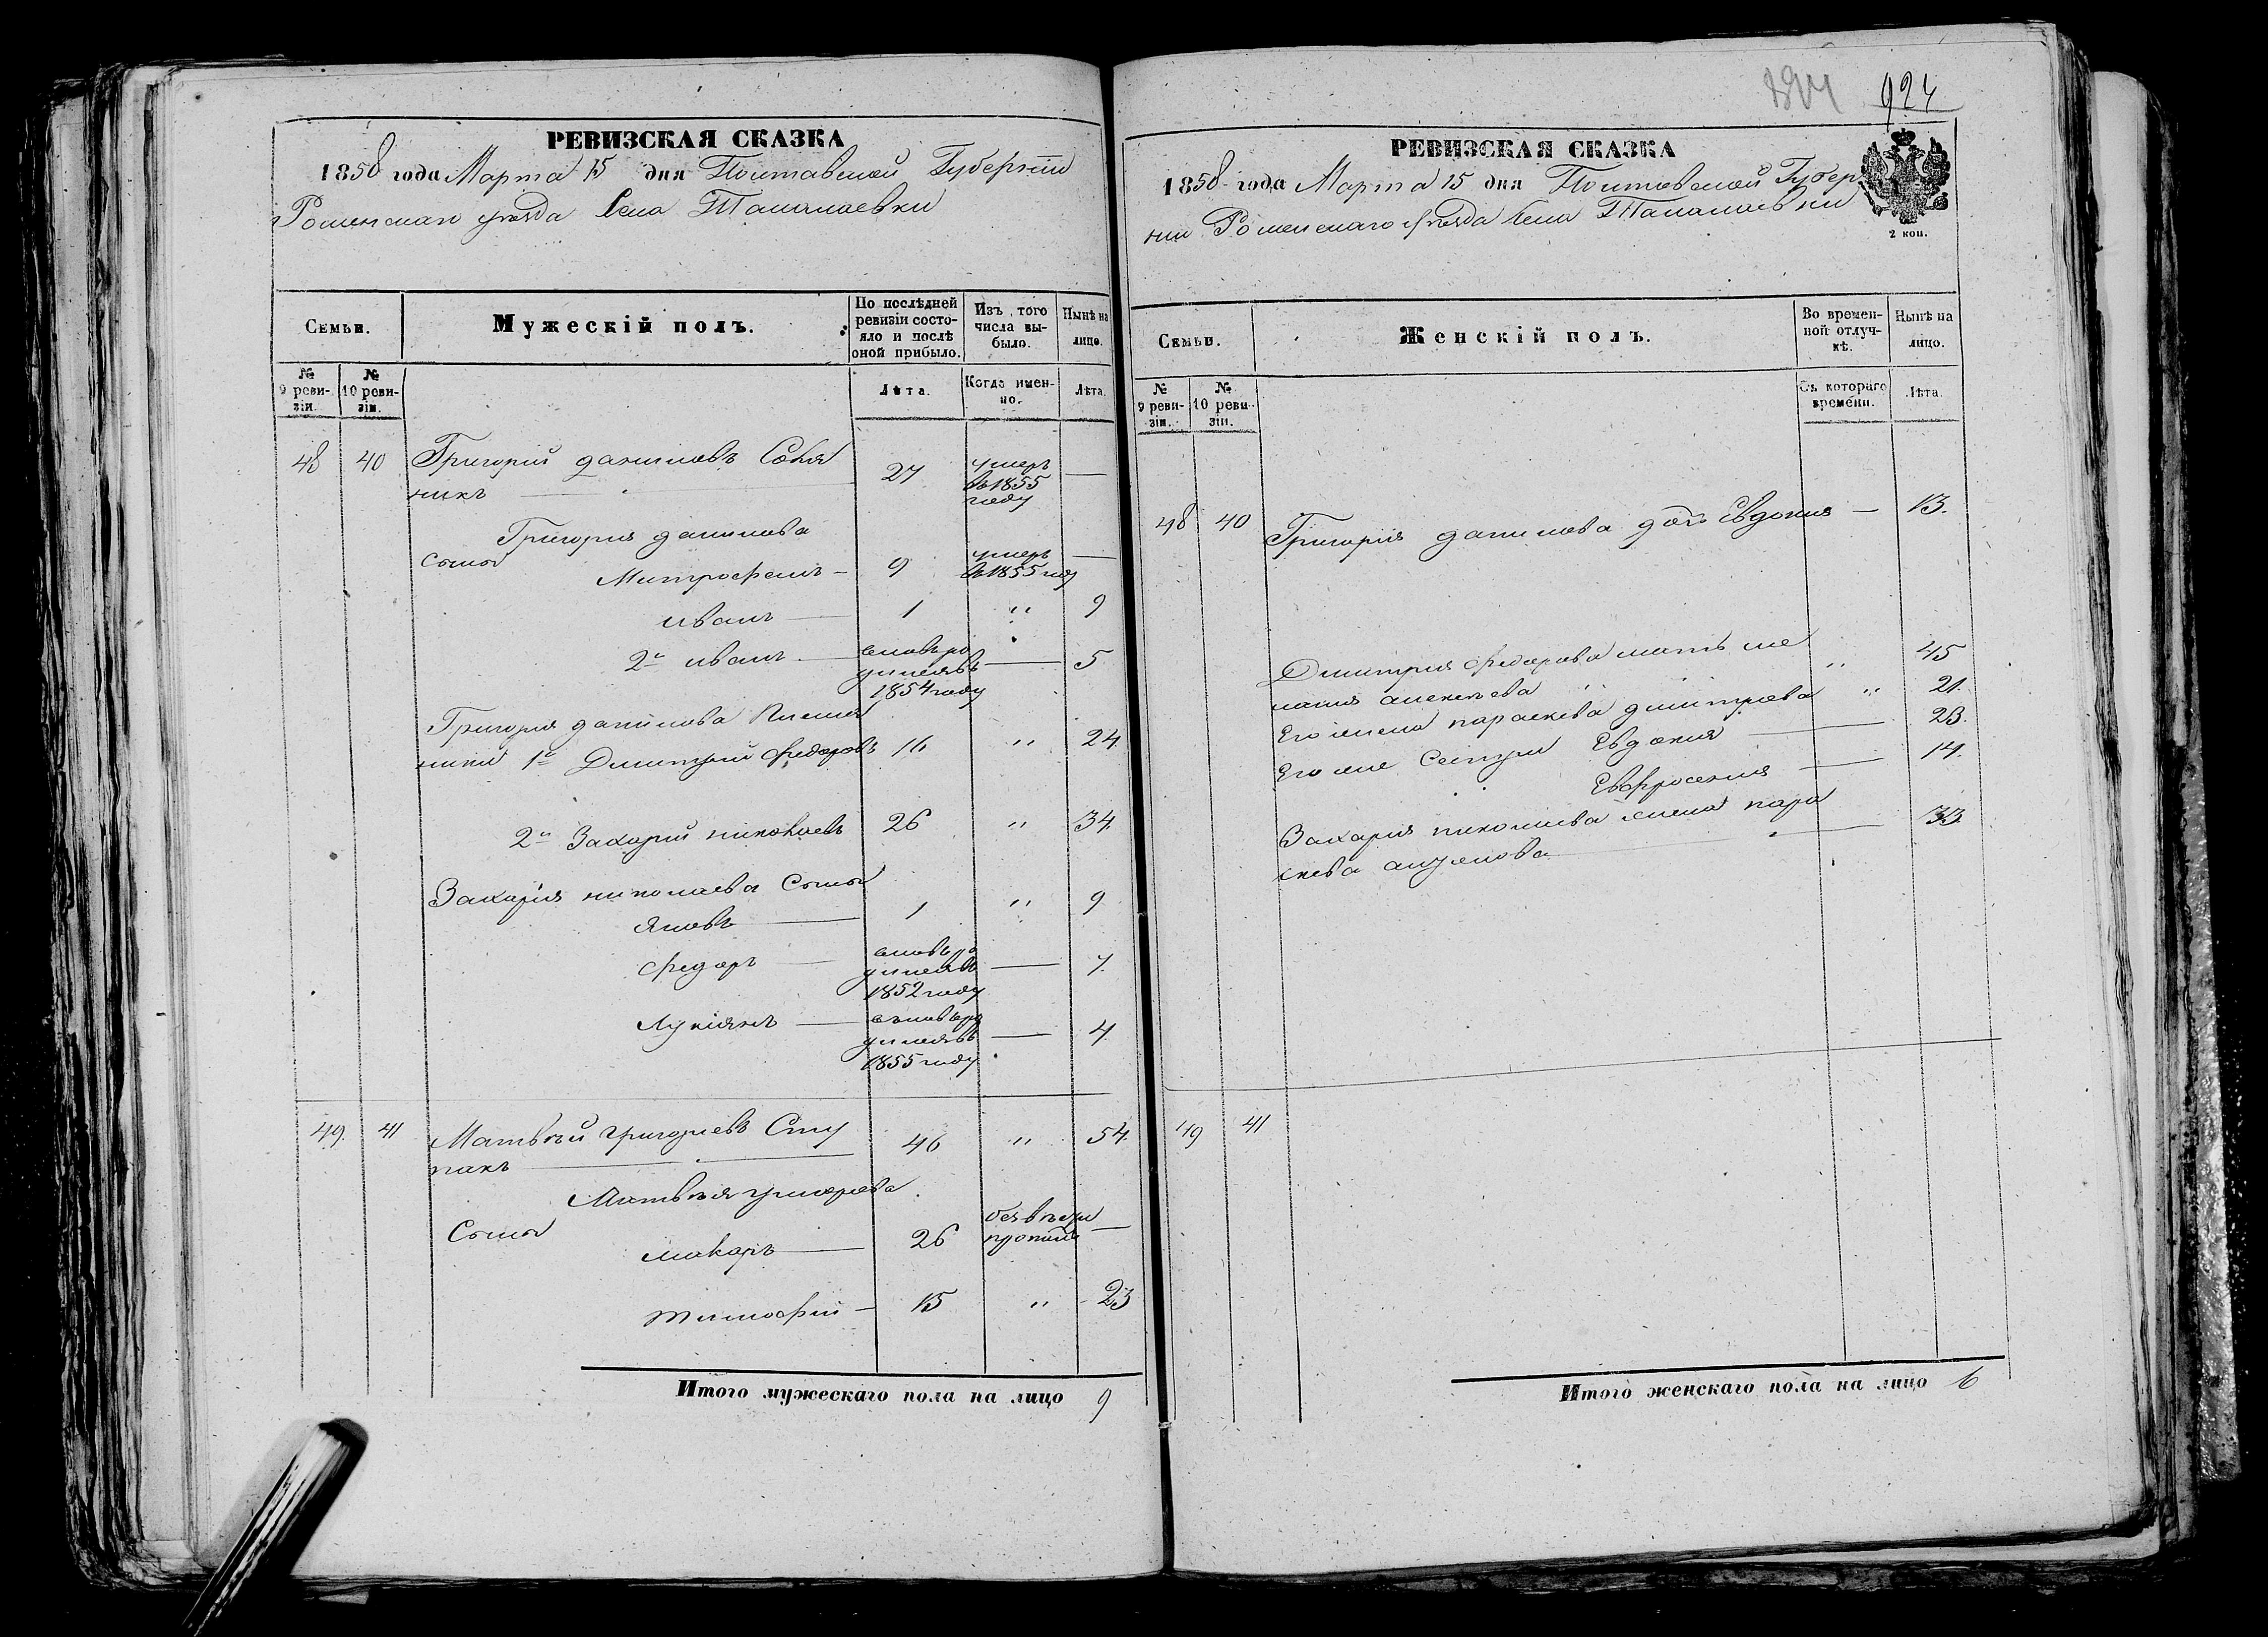 РЕВИЗСКАЯ СКАЗКА
1858 года Марта 15 дня Полтавской Губерніи
Роменскаго уезда Села Талалаевки
Семьи.
Мужескій полъ.
По послѣдней ревизіи состояло и послѣ оной прибыло.
Изъ того числа выбыло.
Нынѣ на лицо.
№ 9 ревизіи.
№ 10 ревизіи.
Лѣта.
Когда именно.
Лѣта.
48 40 Григорий данилов
никъ 27 умеръ въ 1855 году —
Григория данилова
сыны
Митрофанъ — 9 умеръ въ 1855 году —
иванъ — 1 " 9
2й иванъ — вновь родился въ 1854 году — 5
Григория данилова племян
ники 1й Дмитрий федоровъ 16 " 24
2й Захарий николаевъ 26 " 34
Захарія николаева Сыны
Яковъ — 1 " 9
федоръ — вновь родился въ 1852 году — 7
Лукіянъ — вновь родился въ 1855 году — 4
49 41 Матвѣй григорьевъ Сту
пакъ 46 " 54
Матвѣя григорьева
Сыны
макаръ — 26 безвѣсти —
тимофій — 15 " 23
Итого мужескаго пола на лицо 9
924
РЕВИЗСКАЯ СКАЗКА
1858 года Марта 15 дня Полтавской Губер
ніи Роменскаго уезда Села Талалаевки
2 коп.
Семьи.
Женскій полъ.
Во временной отлучкѣ.
Нынѣ на лицо.
№ 9 ревизіи.
№ 10 ревизіи.
Съ котораго времени.
Лѣта.
48 40 Григорія данилова дочь Евдокия — 13.
Дмитрия федорова мать ме
лания алексеева " 45
Его жена параскева дмитриева " 21.
Его же Сестры Евдокия — 23.
Евфросения — 14.
Захария николаева жена пара
скева — 33
49 41
Итого женскаго пола на лицо 6